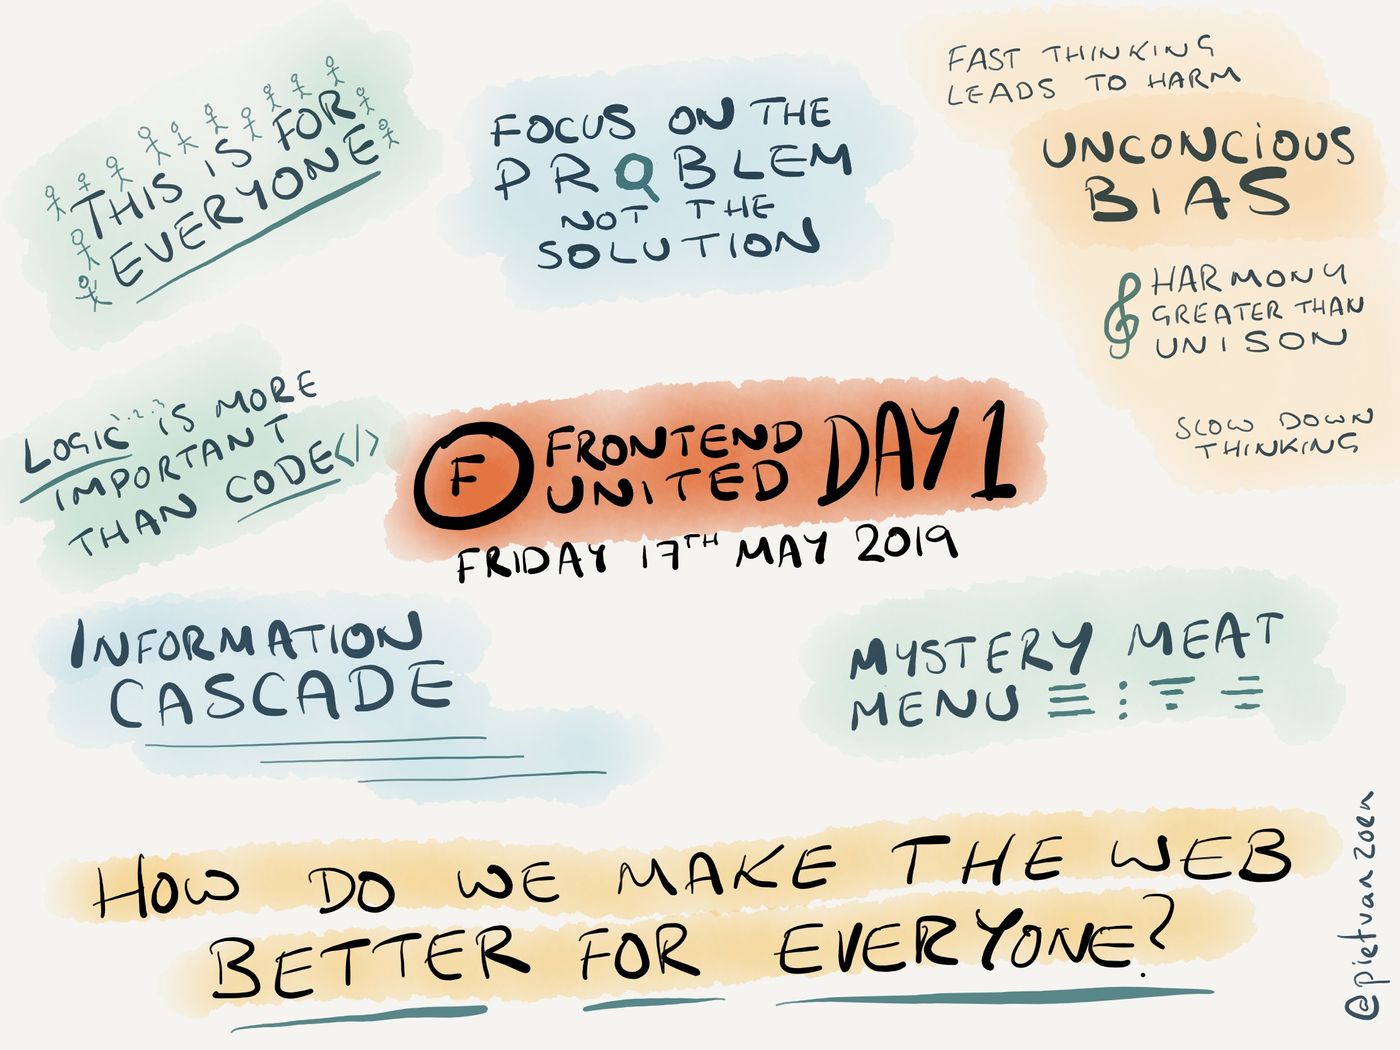 THIS IS FOR
EVERYONE
FOCUS ON THE
PROBLEM
NOT THE
SOLUTION
FAST THINKING
LEADS TO HARM
UNCONCIOUS
BIAS
HARMONY
GREATER THAN
UNISON
SLOW DOWN
THINKING
LOGIC 1.2.3 IS MORE
IMPORTANT
THAN CODE </>
F FRONTEND
UNITED DAY 1
FRIDAY 17TH MAY 2019
INFORMATION
CASCADE
MYSTERY MEAT
MENU
HOW DO WE MAKE THE WEB
BETTER FOR EVERYONE?
@pietvanzoen